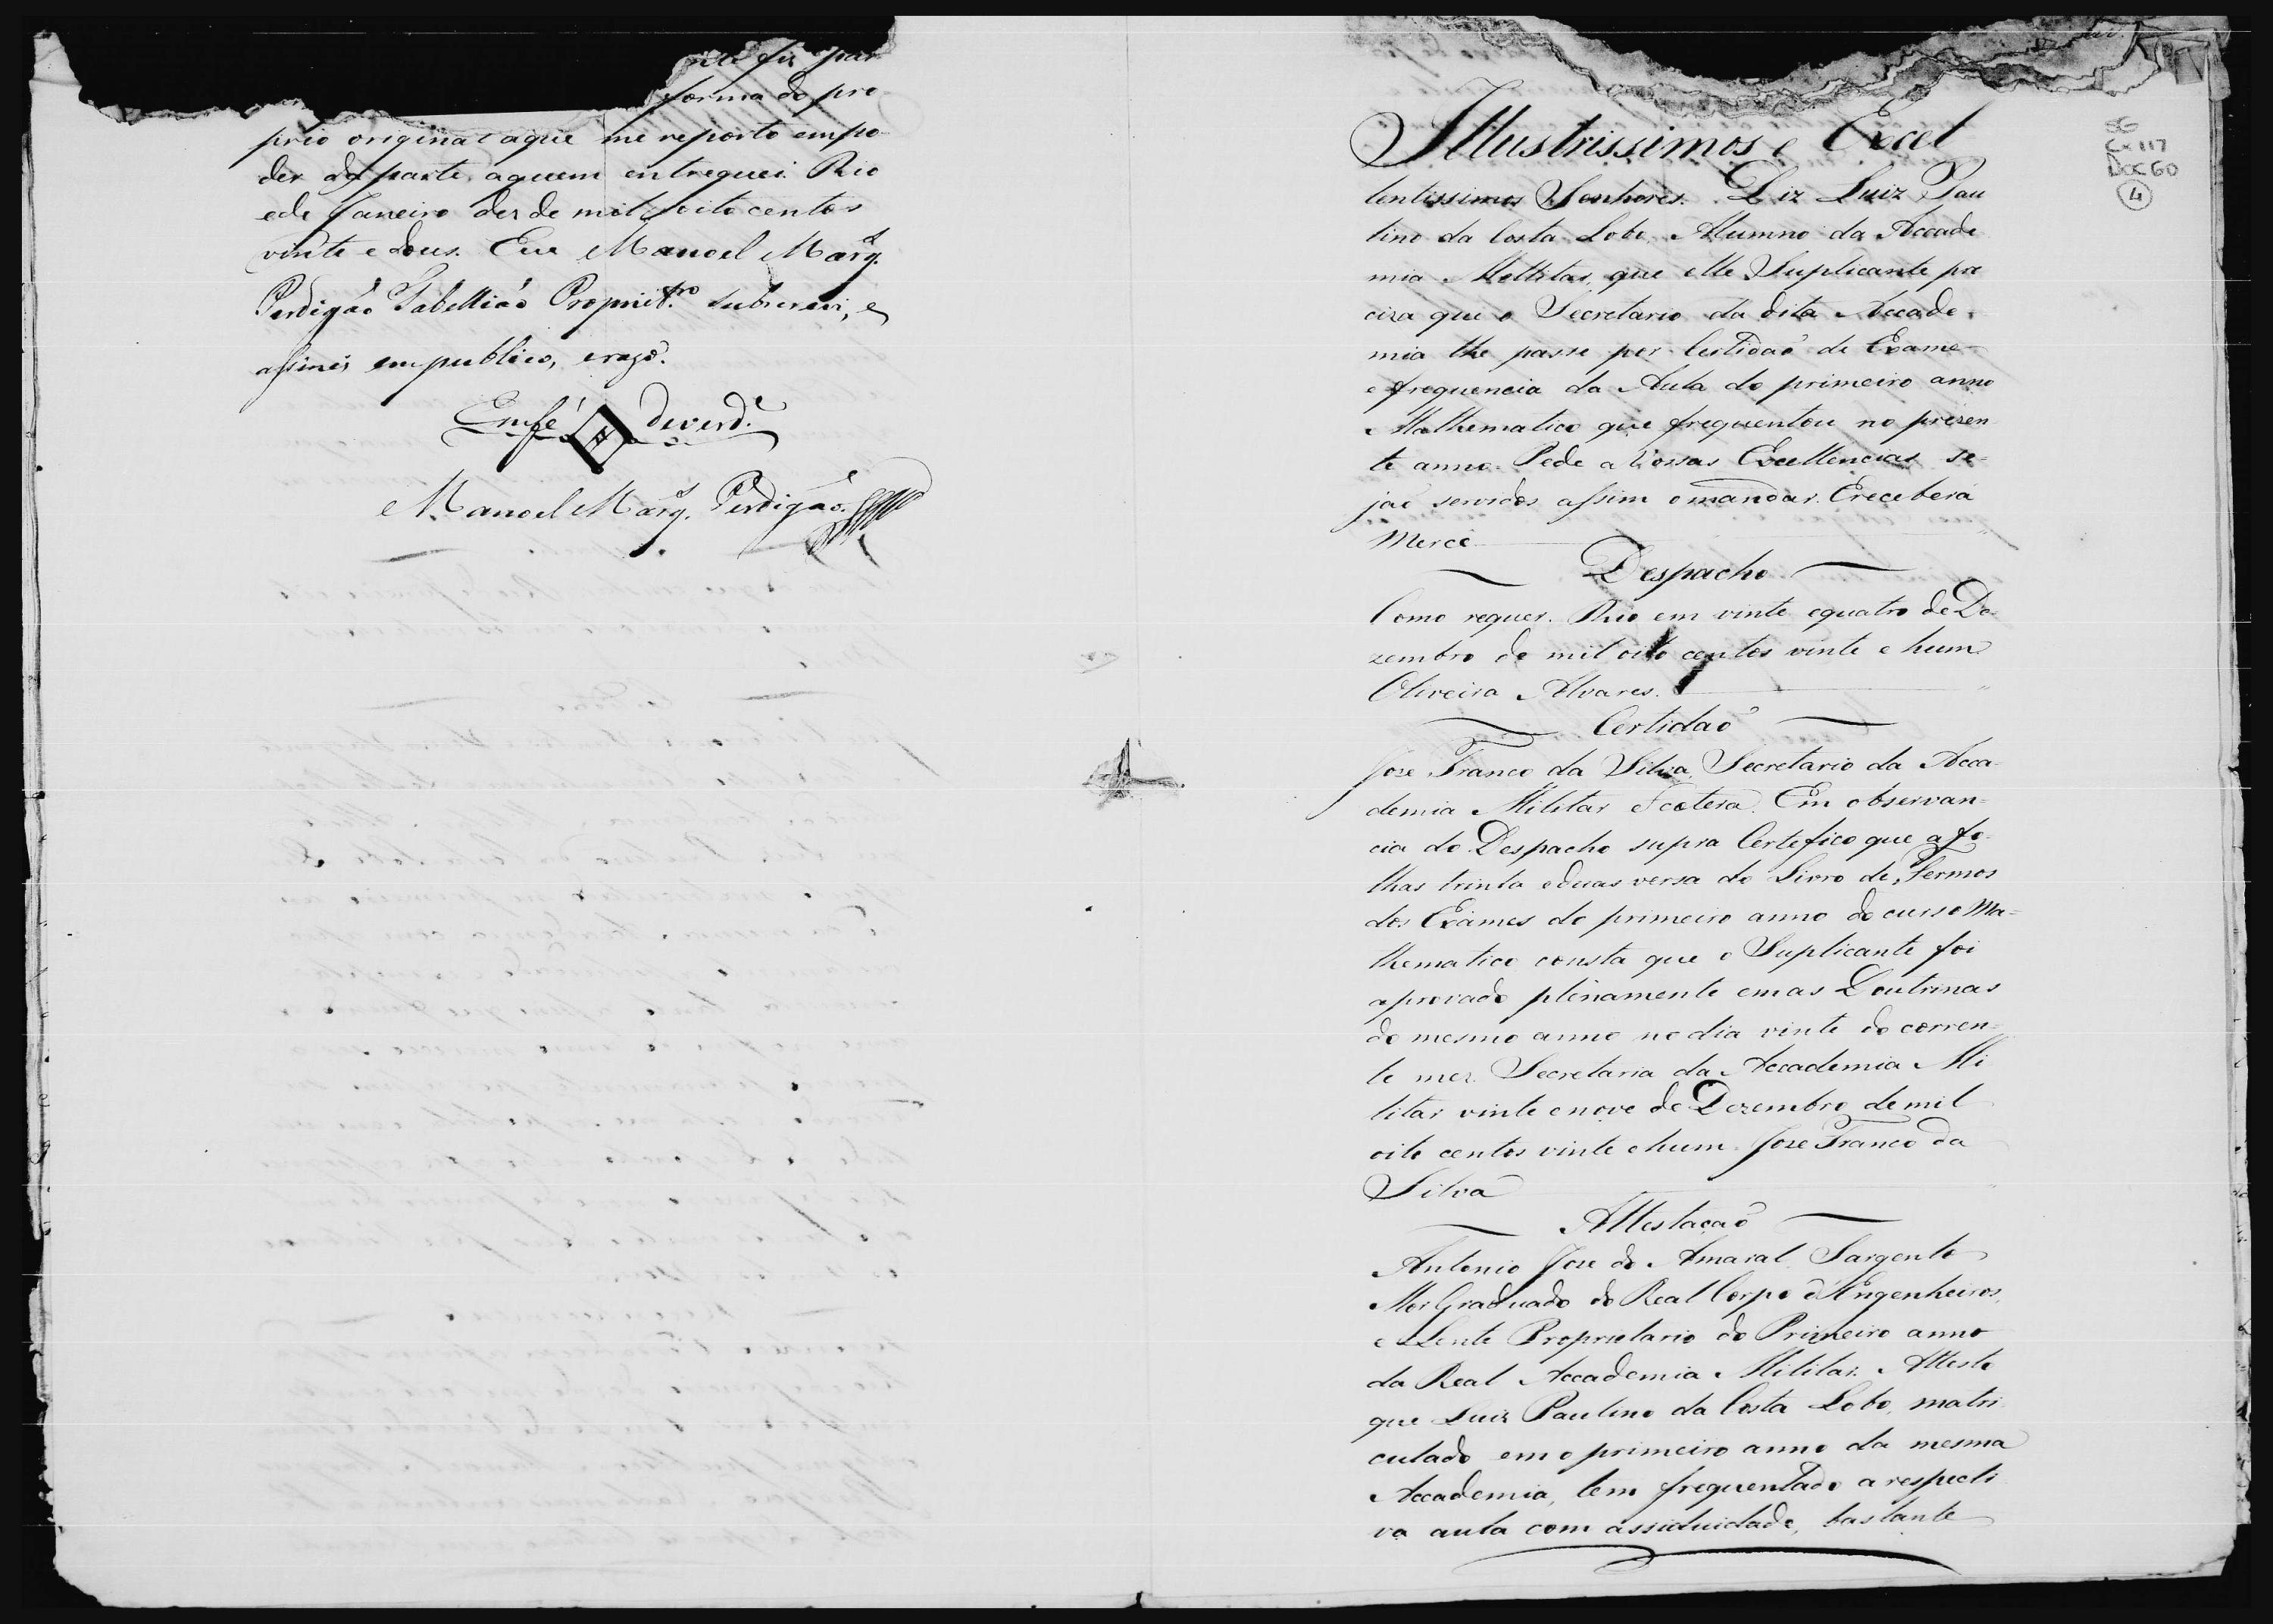 fiz pas
forma do pro
prio original aque me reporto empo
der da parte aquem entreguei. Rio
ede Janeiro dez de mil oito centos
vinte e dous. Eu Manoel Marq.s
Perdigaõ Tabelliaõ Propriet.ro subscrevi, e
assinei empublico, erazo.
Emfé deverd.e
Manoel Marq.s Perdigaõ
SG
Cx 117
Doc 60
4
Illustrissimos e Excel
lentissimos Senhores. Diz Luiz Pau
lino da Costa Lobo, Alumno da Accade
mia Militar, que elle Suplicante pre
ciza que o Secretario da dita Accade
mia lhe passe por Certidaõ de Exame
e frequencia da Aula do primeiro anno
Mathematico que frequentou no prezen
te anno. Pede a Vossas Excellencias se=
jaõ servidos assim omandar. Ereceberá
Mercê
Despacho
Como requer. Rio em vinte equatro de De
zembro de mil oito centos vinte e hum
Oliveira Alvares.
Certidaõ
Joze Franco da Silva, Secretario da Acca
demia Militar Ecetera. Em observan=
cia do Despacho supra Certefico que afo=
lhas trinta eduas versa do Livro de Termos
dos Exames do primeiro anno do curso Ma=
thematico consta que o Suplicante foi
aprovado plénamente emas Doutrinas
do mesmo anno no dia vinte do corren=
te mez. Secretaria da Accademia Mi
litar vinte enove de Dezembro de mil
oito centos vinte ehum. Joze Franco da
Silva
Attestaçaõ
Antonio Joze do Amaral Sargento
Mor Graduado do Real Corpo d'Engenheiros,
e Lente Proprietario do Primeiro anno
da Real Accademia Militar. Attesto
que Luiz Paulino da Costa Lobo, matri
culado emo primeiro anno da mesma
Accademia, tem frequentado a respecti
va aula com assiduidade, bastante